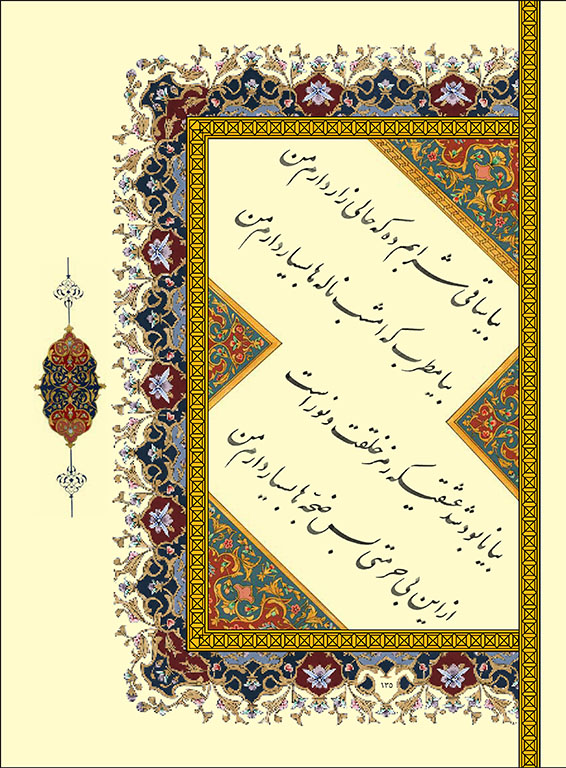 بیا ساقی شرابم ده که حالی زار دارم من
بیا مطرب که امشب ناله ها بسیار دارم من
بیا نابود شد عشقیکه رمز خلقت و نور است
از این بی حرمتی بس ضجّه ها بسیار دارم من
۱۳۵